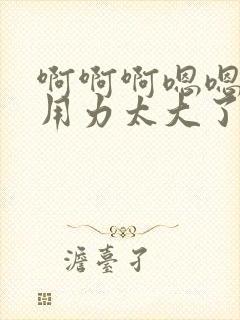 啊啊啊嗯嗯
用力太大了
澹臺孑